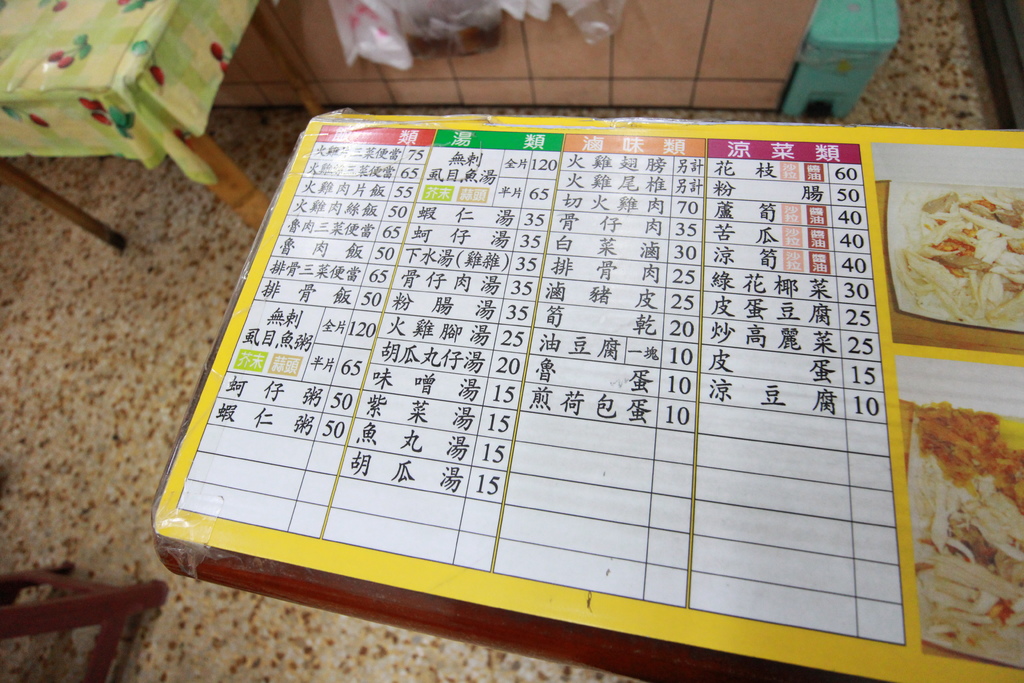 飯 類
火雞片三菜便當 75
火雞絲三菜便當 65
火雞肉片飯 55
火雞肉絲飯 50
魯肉三菜便當 65
魯肉飯 50
排骨三菜便當 65
排骨飯 50
無刺
虱目魚粥
全片 120
芥末 蒜頭
半片 65
蚵仔粥 50
蝦仁粥 50
湯 類
無刺
虱目魚湯
全片 120
芥末 蒜頭
半片 65
蝦仁湯 35
蚵仔湯 35
下水湯(雞雜) 35
骨仔肉湯 35
粉腸湯 35
火雞腳湯 25
胡瓜丸仔湯 20
味噌湯 15
紫菜湯 15
魚丸湯 15
胡瓜湯 15
滷味類
火雞翅膀 另計
火雞尾椎 另計
切火雞肉 70
骨仔肉 35
白菜滷 30
排骨肉 25
滷豬皮 25
筍乾 20
油豆腐 一塊 10
魯蛋 10
煎荷包蛋 10
涼菜類
花枝 沙拉 醬油 60
粉腸 50
蘆筍 沙拉 醬油 40
苦瓜 沙拉 醬油 40
涼筍 沙拉 醬油 40
綠花椰菜 30
皮蛋豆腐 25
炒高麗菜 25
皮蛋 15
涼豆腐 10